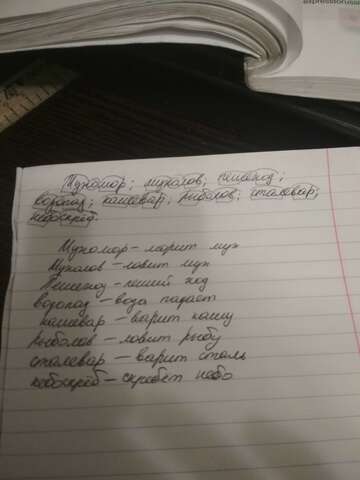 expressoruss
Мухомор; мухолов; пешеход;
водопад; кашевар; рыболов; сталевар;
небоскрёб.
Мухомор – морит мух
Мухолов – ловит мух
Пешеход – пеший ход
водопад – вода падает
кашевар – варит кашу
Рыболов – ловит рыбу
сталевар – варит сталь
небоскрёб – скребёт небо